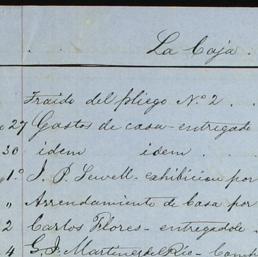 La Caja.
Traido del pliego No. 2 . .
27 Gastos de casa - entregado
30 idem idem . .
1.º J. P. Sewell - exhibicion por
" Arrendamiento de Casa por
2 Carlos Flores - entregadole
4 G. J. Martinez del Rio - Comp